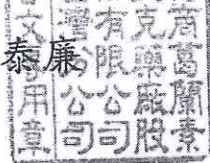 商葛蘭素
克藥廠股
有限公司
灣分公司
文專用章
泰廉